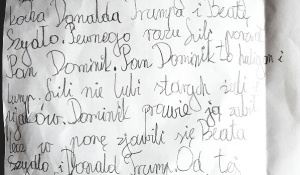 kota Donalda Trumpa i Beatę
Szydło. Pewnego razu Lili porwał
Pan Dominik. Pan Dominik to huligan i
Lili nie lubi starych żuli i
pijaków. Dominik prawie ją zabił
lecz w porę zjawili się Beata
Szydło i Donald Trump. Od tej